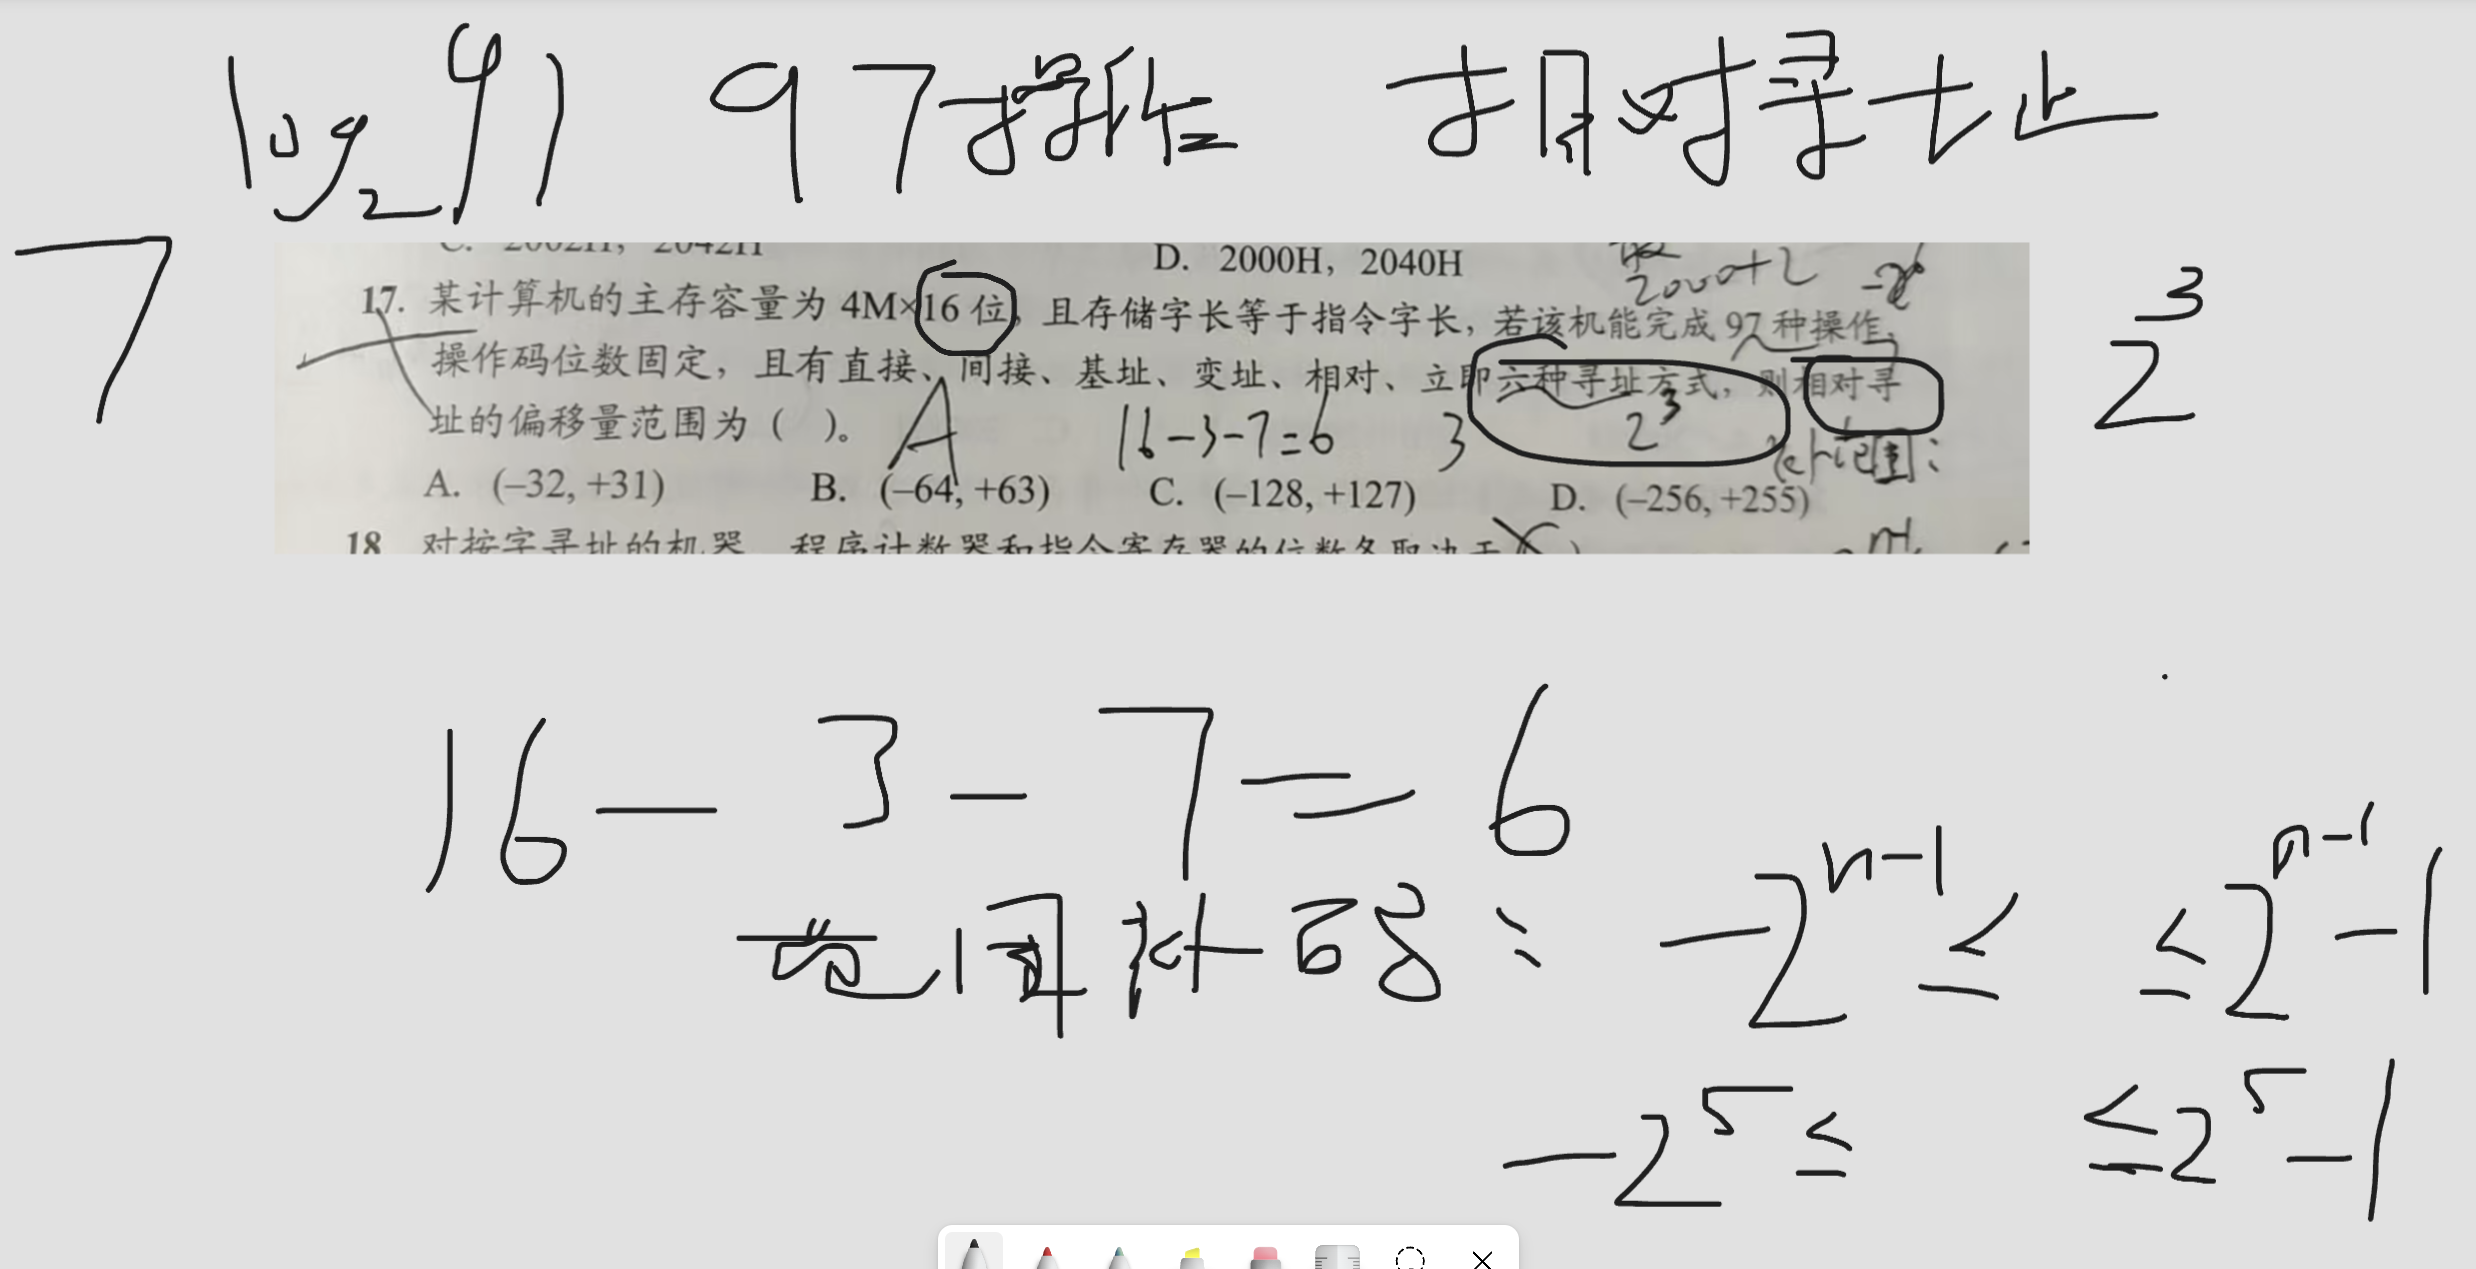 log₂97 97操作 相对寻址
7
C. 2002H，2042H D. 2000H，2040H
2000+2
17. 某计算机的主存容量为 4M×16 位，且存储字长等于指令字长，若该机能完成 97 种操作，
操作码位数固定，且有直接、间接、基址、变址、相对、立即六种寻址方式，则相对寻
址的偏移量范围为（ ）。 A 16-3-7=6 3 2³
2³
补范围：
A. (–32, +31) B. (–64, +63) C. (–128, +127) D. (–256, +255)
18 对按字寻址的机器，程序计数器和指令寄存器的位数各取决于（ ）
n-1
16-3-7=6
范围补码： -2ⁿ⁻¹≤ ≤2ⁿ⁻¹-1
-2⁵≤ ≤2⁵-1